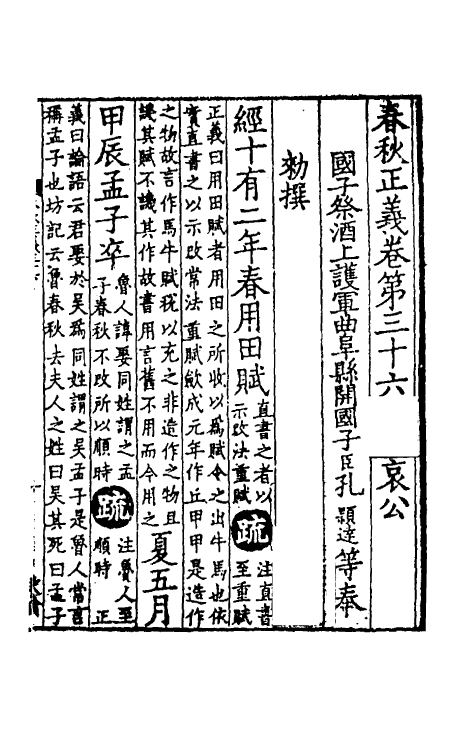 春秋正義卷第三十六 哀公
國子祭酒上護軍曲阜縣開國子臣孔穎達等奉
勑撰
經十有二年春用田賦 直書之者以示改法重賦 疏 注直書至重賦
正義曰用田賦者用田之所收以爲賦令之出牛馬也依
實直書之以示改常法重賦斂成元年作丘甲甲是造作
之物故言作馬牛賦稅以充之非造作之物且
譏其賦不譏其作故書用言舊不用而今用之 夏五月
甲辰孟子卒 魯人諱娶同姓謂之孟子春秋不改所以順時 疏 注魯人至順時 正
義曰論語云君娶於吳爲同姓謂之吳孟子是魯人常言
稱孟子也坊記云魯春秋去夫人之姓曰吳其死曰孟子